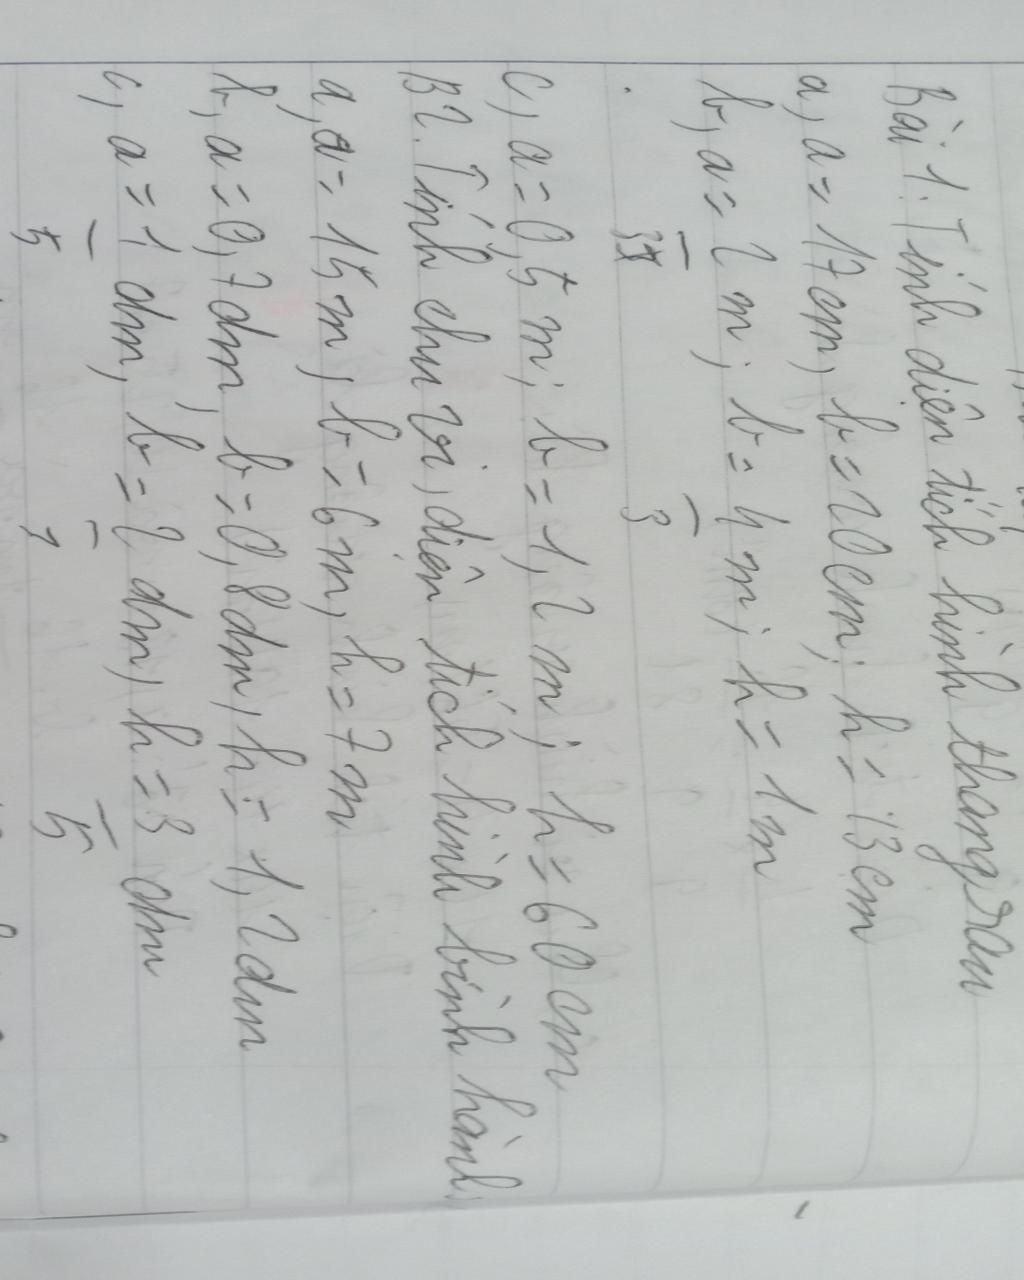 Bài 1. Tính diện tích hình thang sau
a, a = 17cm, b = 20cm; h = 13cm
b, a = 2/3 m; b = 4/3 m; h = 1m
c, a = 0,5 m; b = 1,2 m; h = 60cm
B2. Tính chu vi, diện tích hình bình hành
a, a = 15m; b = 6m, h = 7m
b, a = 0,7dm, b = 0,8dm, h = 1,2dm
c, a = 1/5 dm, b = 2/7 dm, h = 3/5 dm